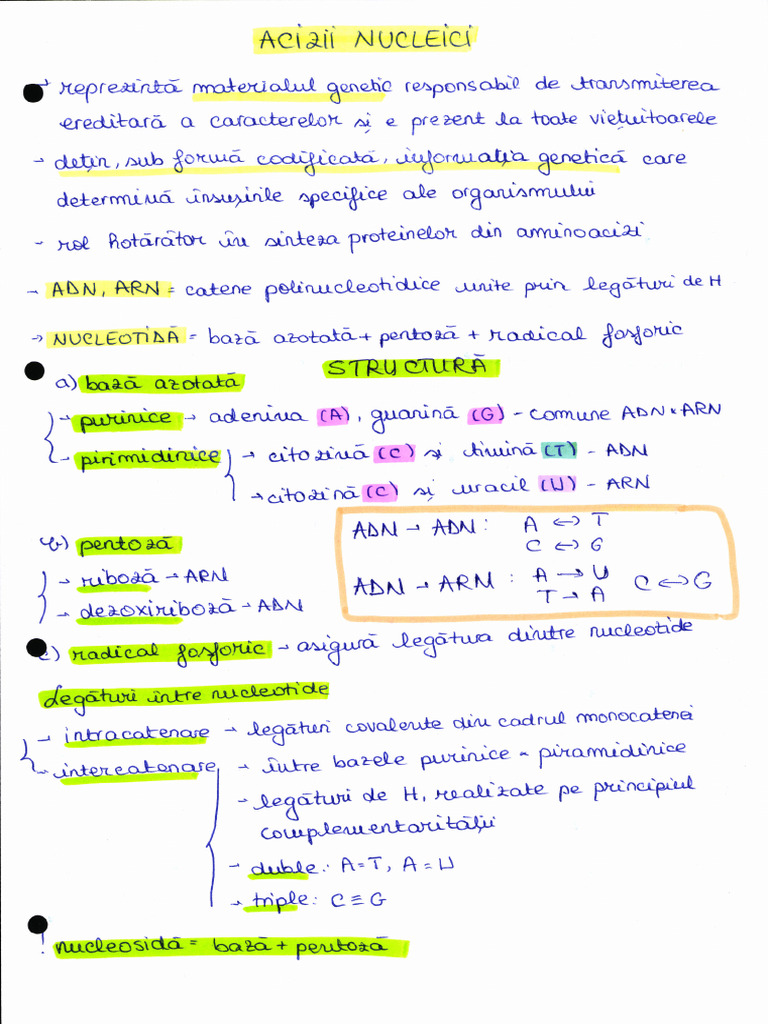 ACIZII NUCLEICI
→ reprezintă materialul genetic responsabil de transmiterea
ereditară a caracterelor și e prezent la toate viețuitoarele
→ dețin, sub formă codificată, informația genetică care
determină însușirile specifice ale organismului
→ rol hotărâtor în sinteza proteinelor din aminoacizi
→ ADN, ARN = catene polinucleotidice unite prin legături de H
→ NUCLEOTIDĂ = bază azotată + pentoză + radical fosforic
STRUCTURĂ
a) bază azotată
→ purinice → adenina (A), guanină (G) - comune ADN ARN
→ pirimidinice → citozină (C) și timină (T) - ADN
→ citozină (C) și uracil (U) - ARN
b) pentoză
→ riboză → ARN
→ dezoxiriboză → ADN
ADN → ADN: A ↔ T
C ↔ G
ADN → ARN: A → U C ↔ G
T → A
c) radical fosforic → asigură legătura dintre nucleotide
Legături între nucleotide
→ intracatenare → legături covalente din cadrul monocatenei
→ intercatenare → între bazele purinice - piramidinice
→ legături de H, realizate pe principiul
complementarității
→ duble: A=T, A=U
→ triple: C≡G
! nucleosidă = bază + pentoză